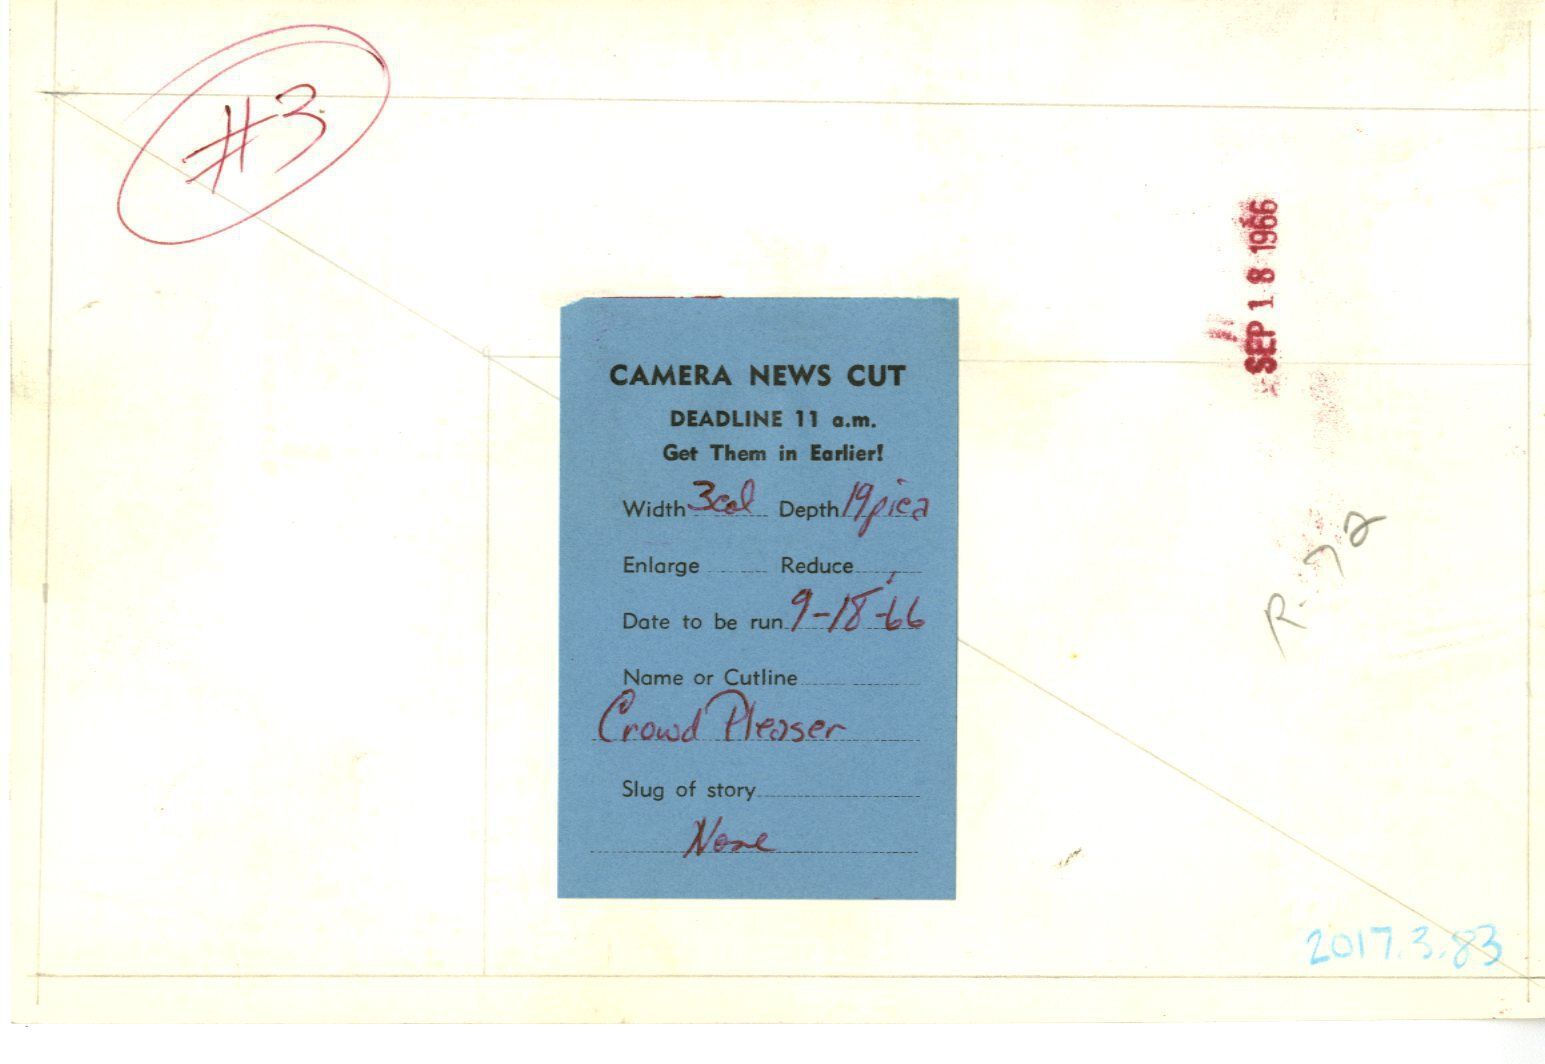 #3
SEP 18 1966
CAMERA NEWS CUT
DEADLINE 11 a.m.
Get Them in Earlier!
Width 3col Depth 19pica
Enlarge Reduce
Date to be run 9-18-66
Name or Cutline
Crowd Pleaser
Slug of story
None
R-72
2017.3.83